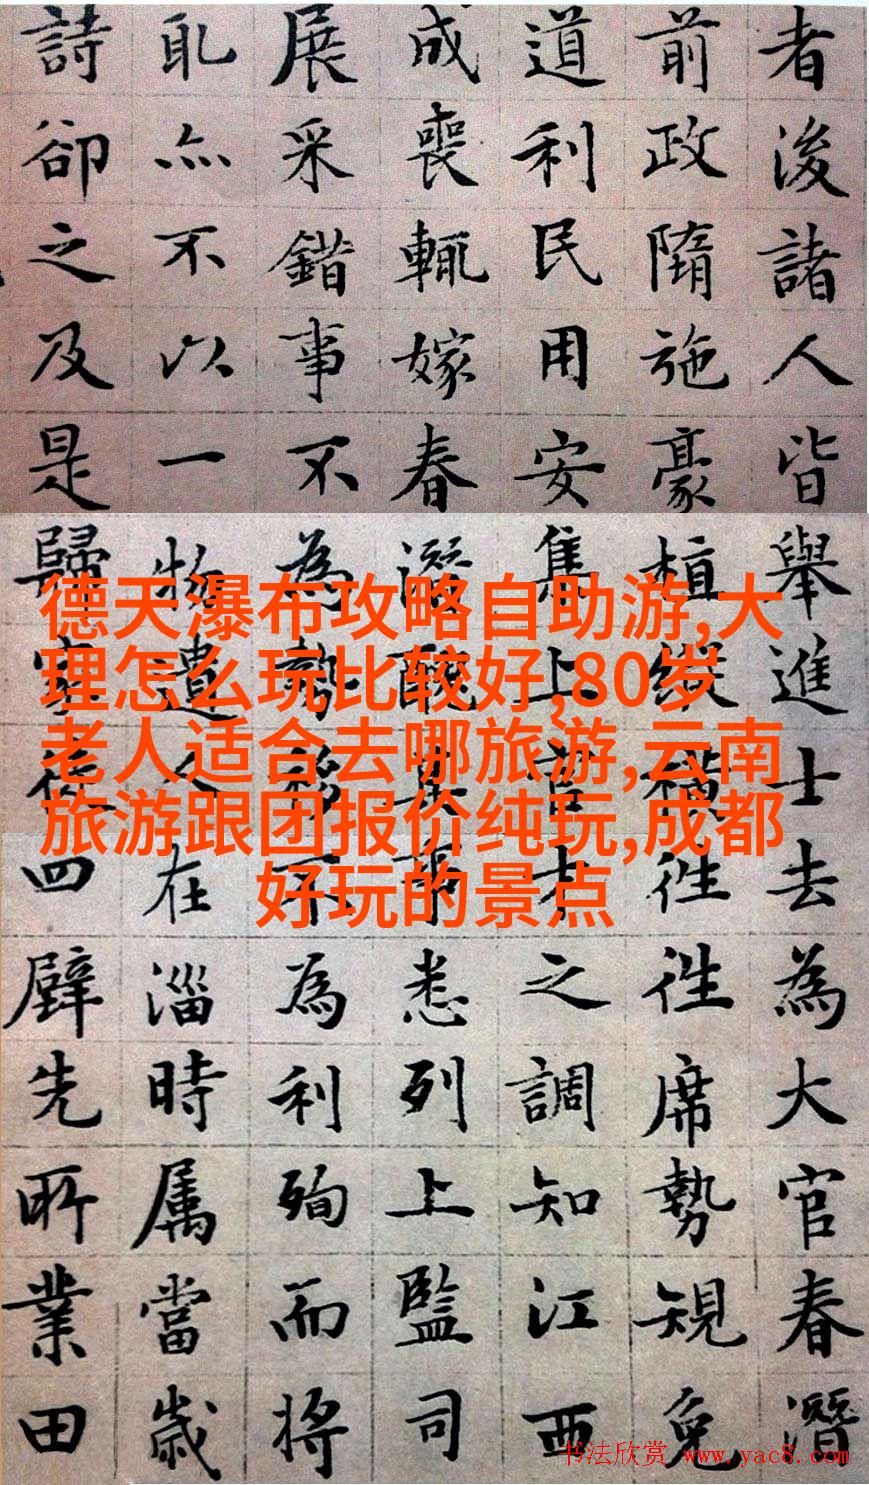 者後諸人皆舉進士去為大官春潛
前政隋施豪植縱橫徃徃席勢規免
道利民用安雋上官才之調知江西
成喪輒嫁春潛醜其事悉列上監司
展采錯事不為勢移不為利殉而將
耴亦不以一物遺人在淄時属當歲
詩卻之及是歸家徒四壁先所業田
德天瀑布攻略自助游,大
理怎么玩比较好,80岁
老人适合去哪旅游,云南
旅游跟团报价纯玩,成都
好玩的景点
书法欣赏 www.yac8.com